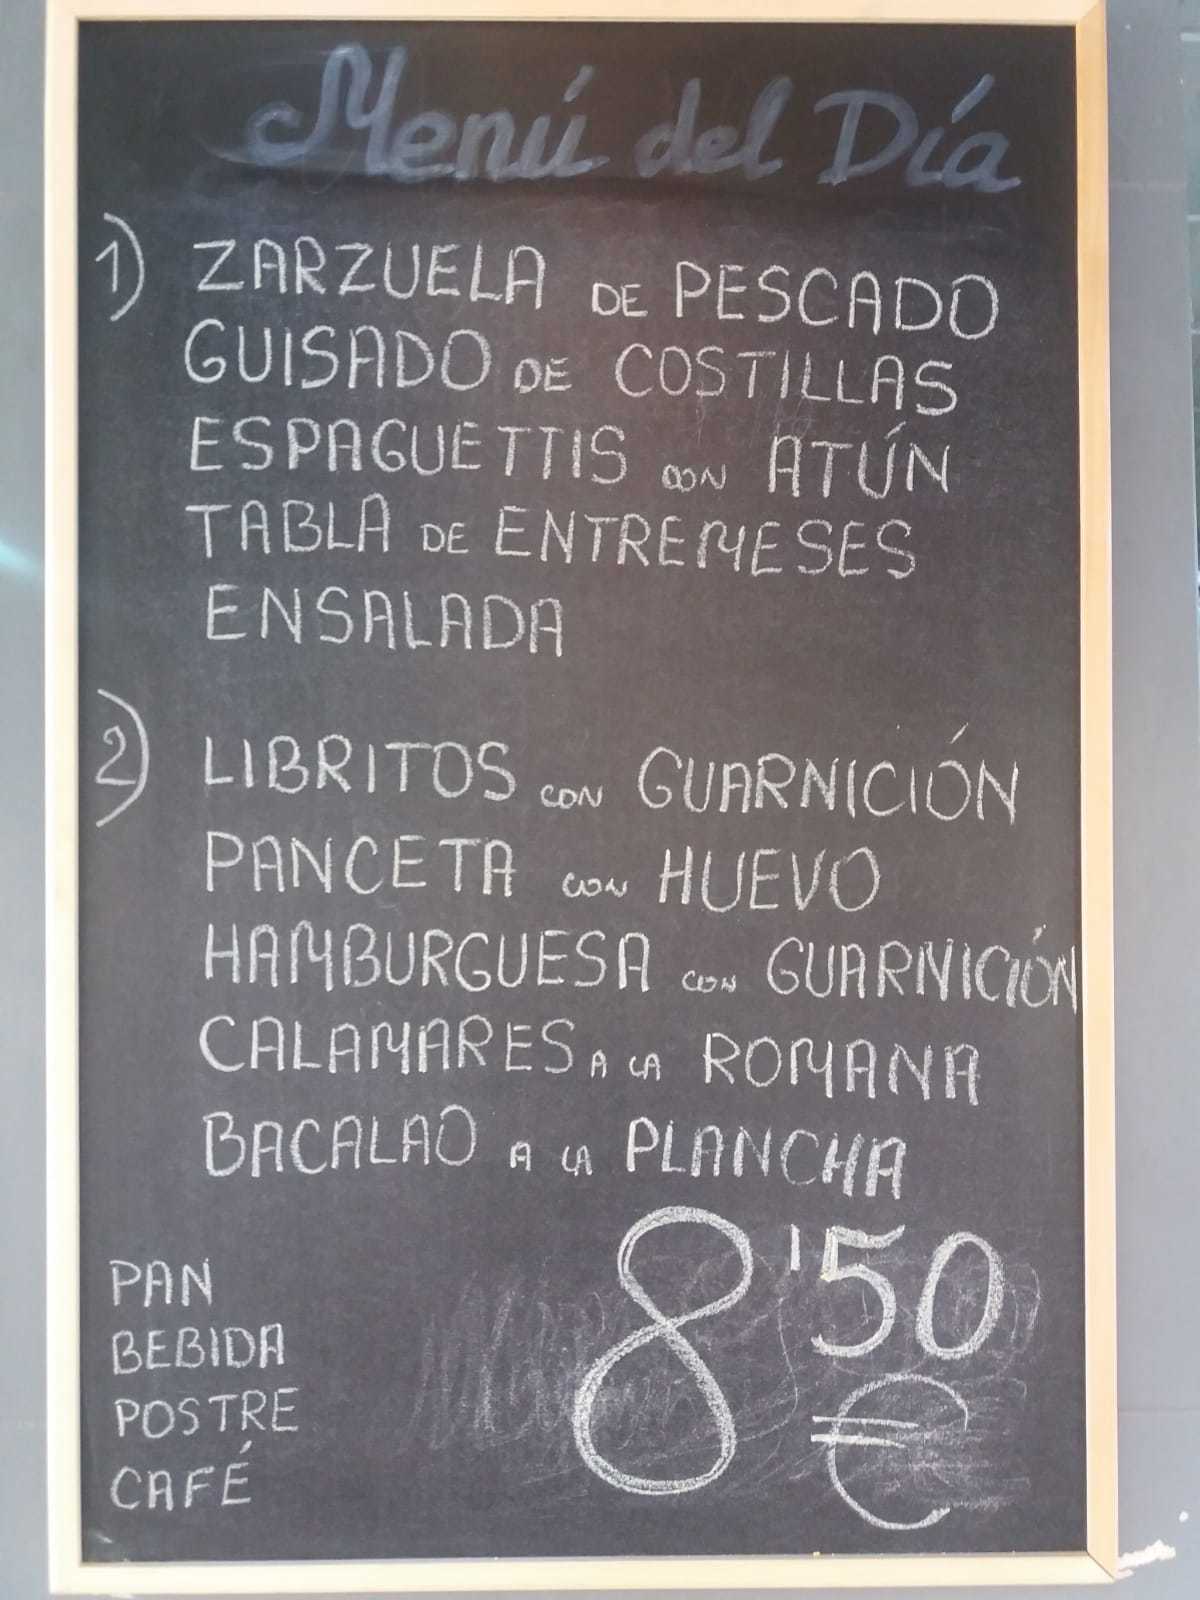 Menú del Día
1) ZARZUELA DE PESCADO
GUISADO DE COSTILLAS
ESPAGUETTIS CON ATÚN
TABLA DE ENTREMESES
ENSALADA
2) LIBRITOS CON GUARNICIÓN
PANCETA CON HUEVO
HAMBURGUESA CON GUARNICIÓN
CALAMARES A LA ROMANA
BACALAO A LA PLANCHA
PAN
BEBIDA
POSTRE
CAFÉ
8'50
€